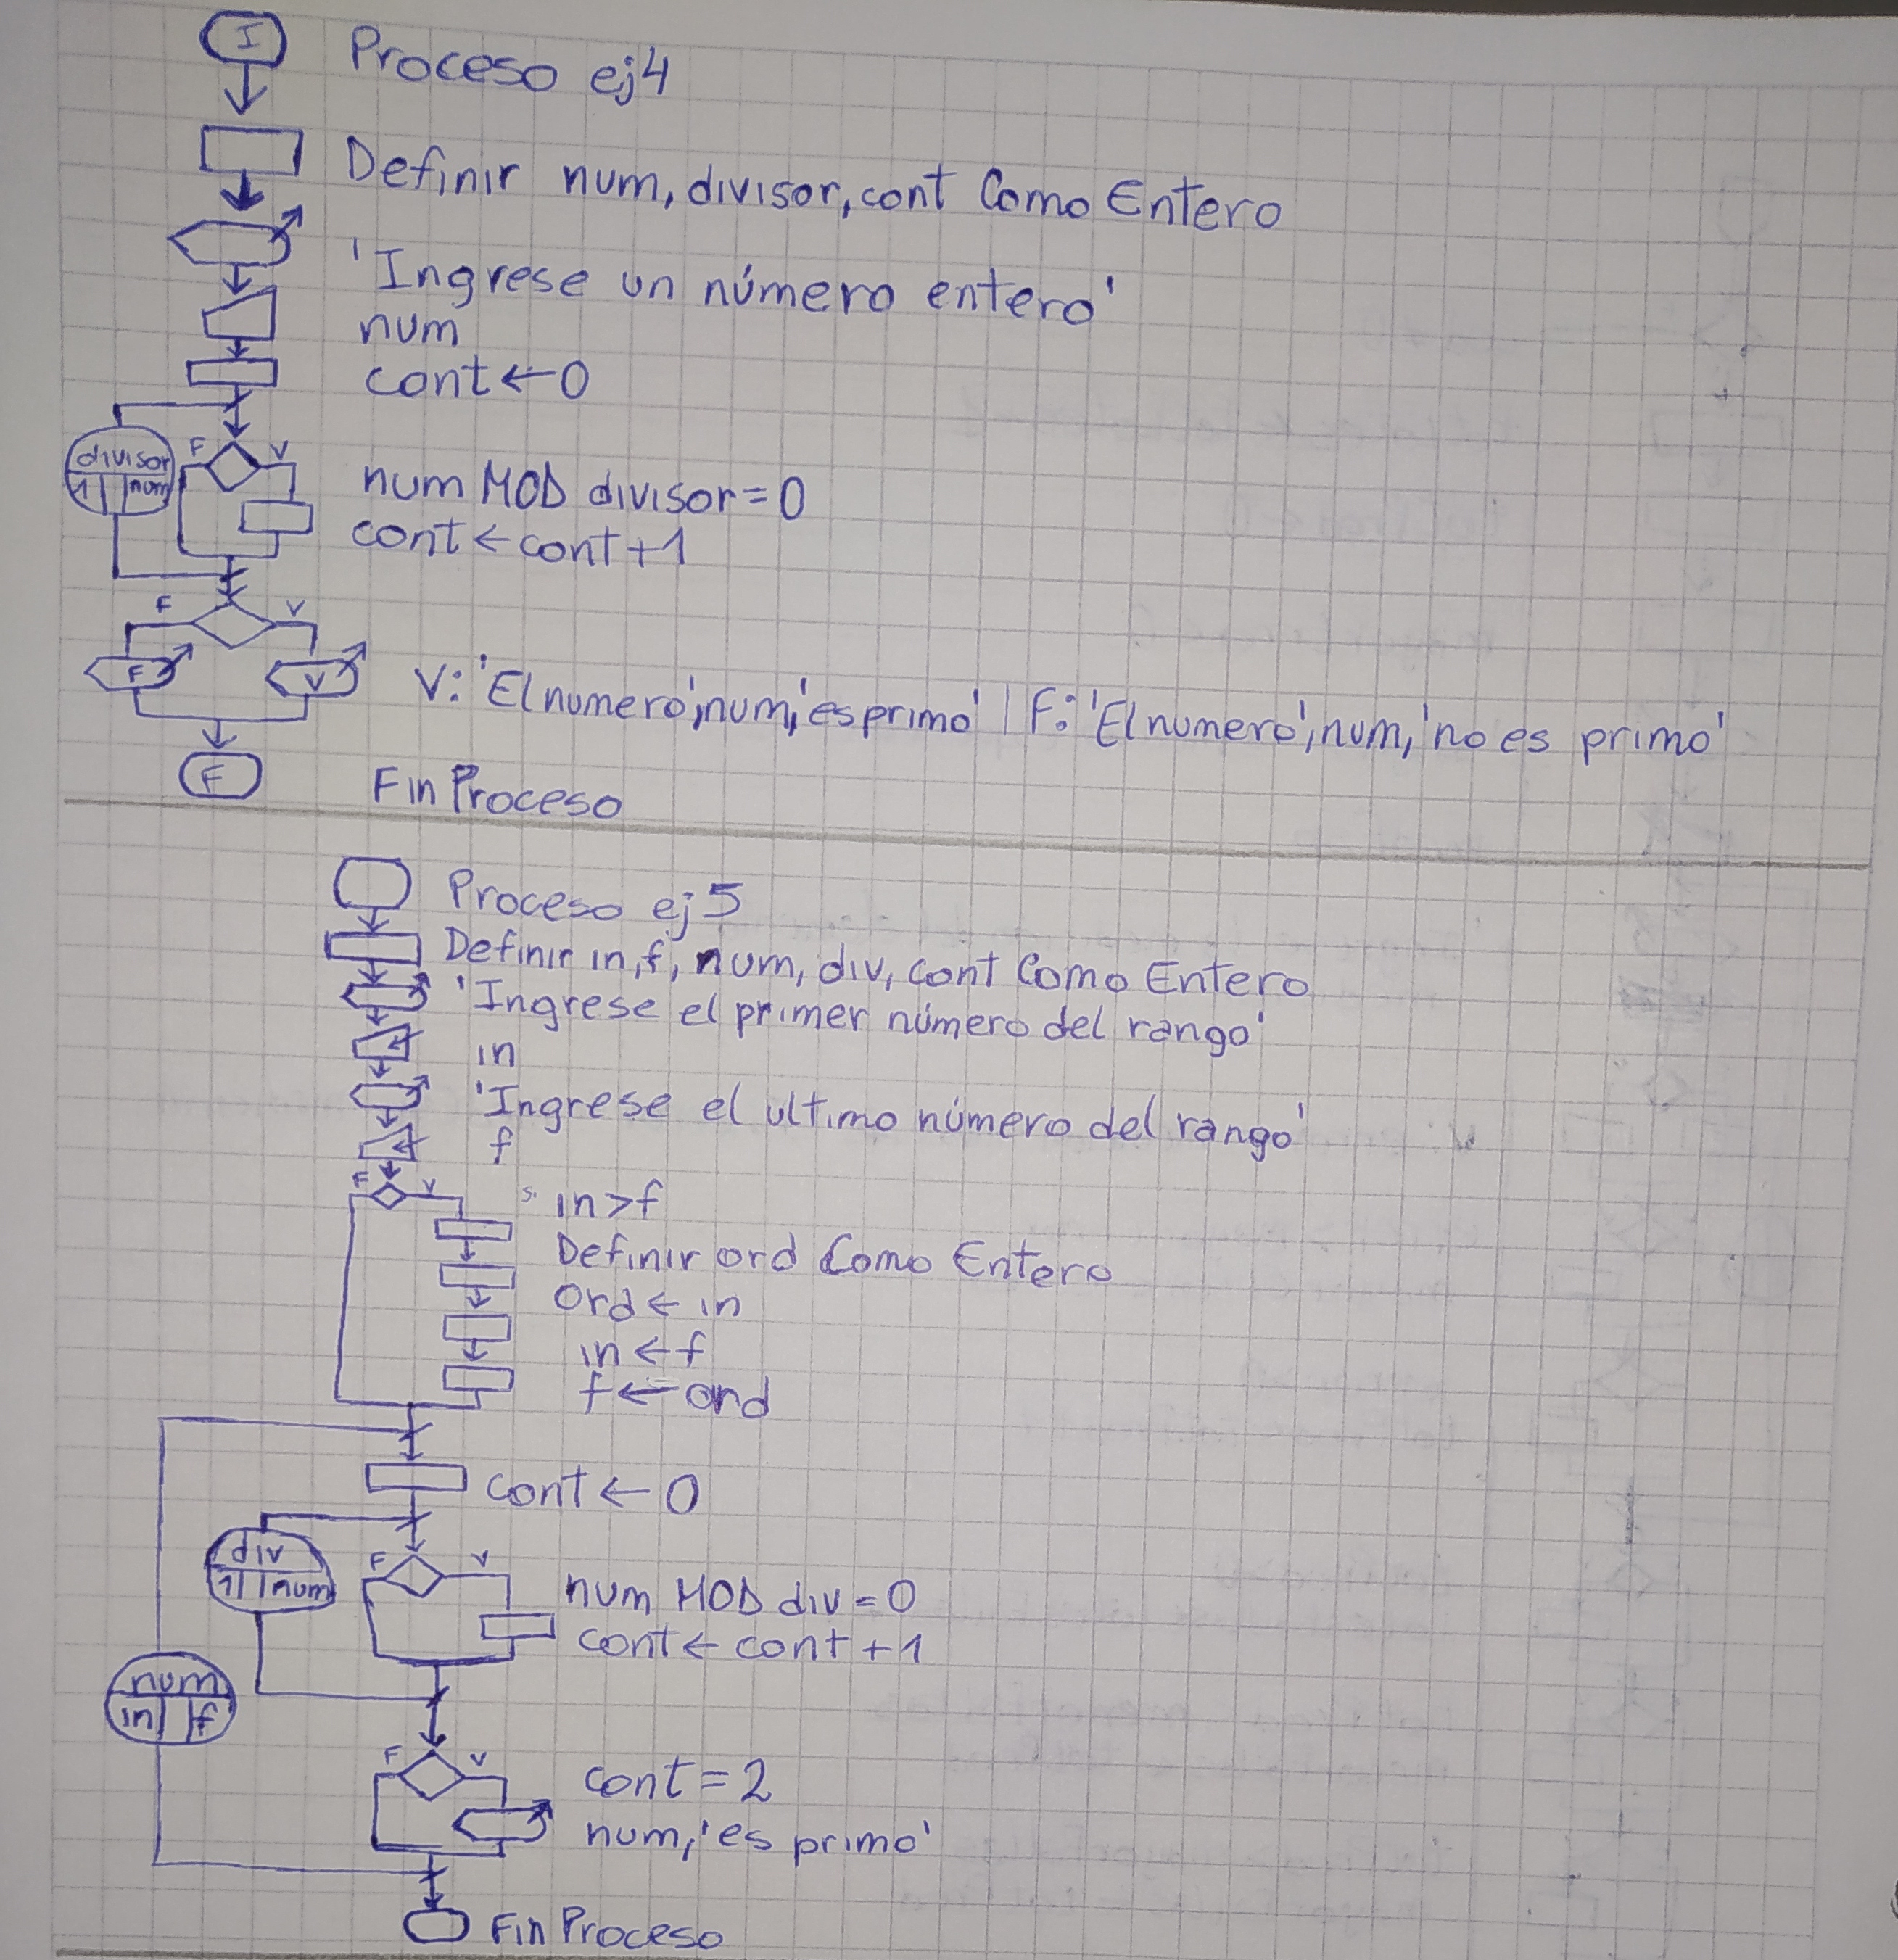 I Proceso ej4
Definir num, divisor, cont Como Entero
'Ingrese un número entero'
num
cont ← 0
divisor
1 num
F V
num MOD divisor = 0
cont ← cont + 1
F V
F V
V: 'El numero', num, 'es primo' | F: 'El numero', num, 'no es primo'
F Fin Proceso
Proceso ej5
Definir in, f, num, div, cont Como Entero
'Ingrese el primer número del rango'
in
'Ingrese el ultimo número del rango'
f
F V in > f
Definir ord Como Entero
Ord ← in
in ← f
f ← ord
cont ← 0
div
1 num
F V
num MOD div = 0
cont ← cont + 1
num
in f
F V
cont = 2
num, 'es primo'
Fin Proceso